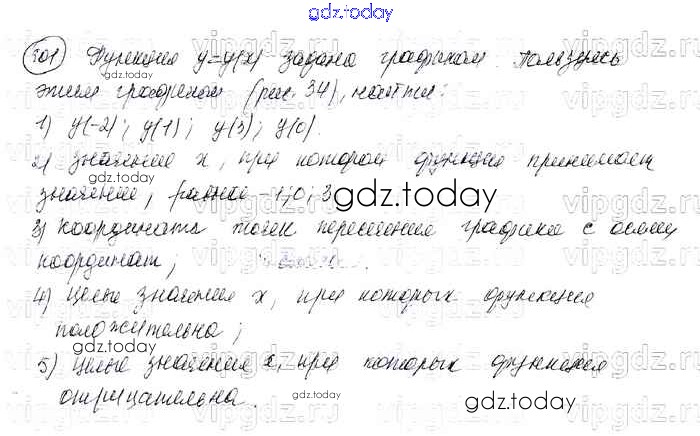 gdz.today
501 Функция y=y(x) задана графиком. Пользуясь
gdz.today
этим графиком (рис. 34), найти:
1) y(-2); y(1); y(3); y(0).
2) значение x, при котором функция принимает
значение, равное -1; 0; 3
gdz.today
3) координаты точек пересечения графика с осями
координат;
4) целые значения x, при которых функция
положительна;
gdz.today
5) целые значения x, при которых функция
отрицательна.
gdz.today
vipgdz.ru